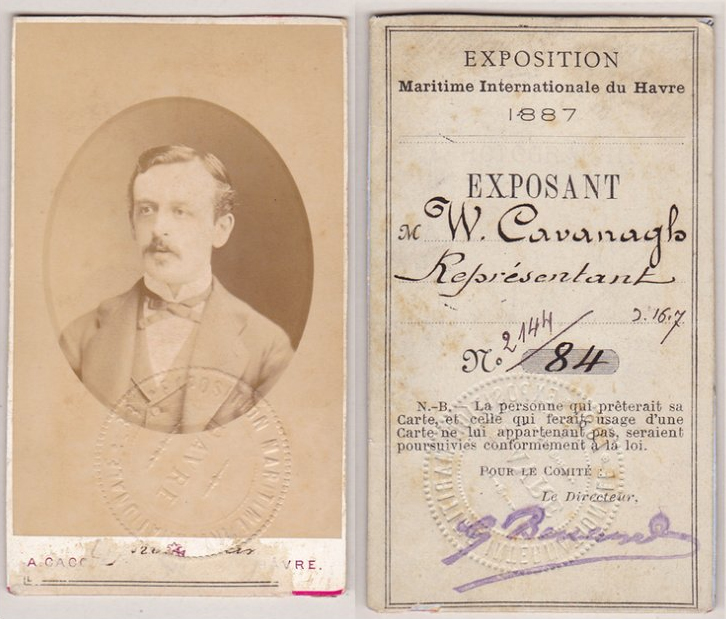 A. CACC
AVRE.
EXPOSITION MARITIME
HAVRE
EXPOSITION
Maritime Internationale du Havre
1887
EXPOSANT
M W. Cavanagh
Représentant
2.16.7
No 2144/84
N.-B. — La personne qui prêterait sa
Carte, et celle qui ferait usage d'une
Carte ne lui appartenant pas, seraient
poursuivies conformément à la loi.
POUR LE COMITÉ :
Le Directeur,